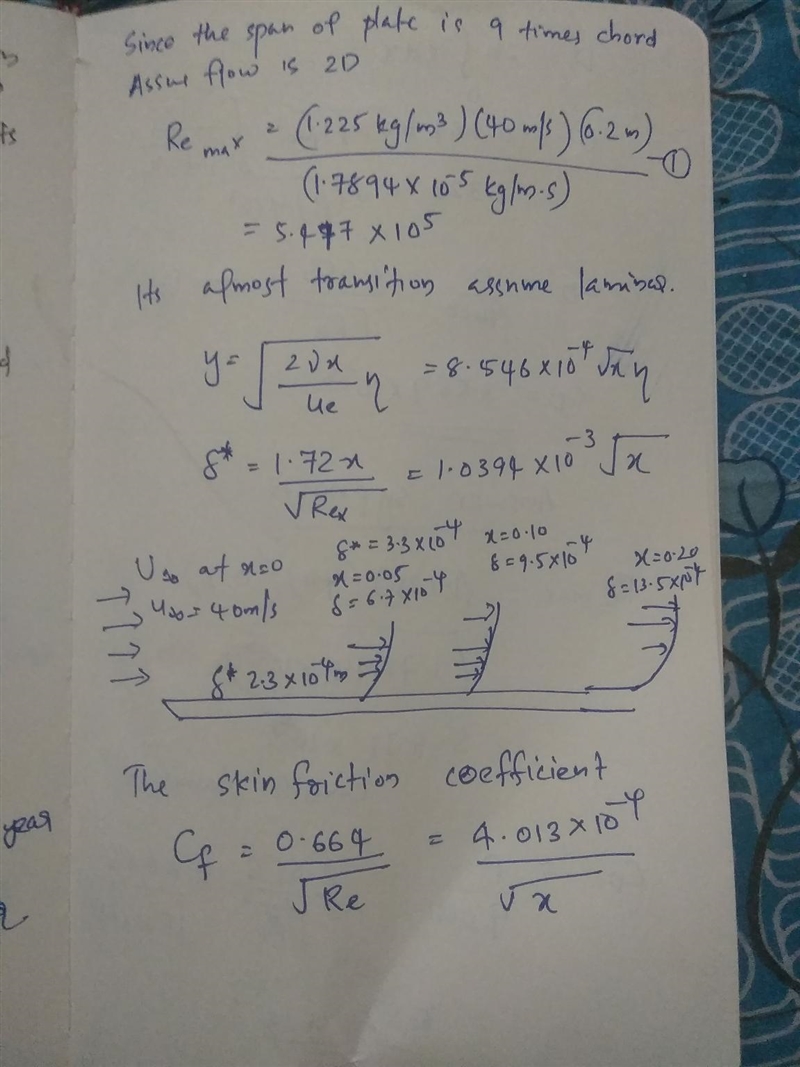 Since the span of plate is 9 times chord
Assue flow is 2D
Re max = (1.225 kg/m³)(40 m/s)(0.2m) / (1.7894 × 10⁻⁵ kg/m.s) —①
= 5.477 × 10⁵
Its almost transition assume laminar.
y = √(2νx / ue) η = 8.546 × 10⁻⁴ √x η
δ* = 1.72x / √Rex = 1.0394 × 10⁻³ √x
U∞ at x=0
u∞ = 40m/s
δ* 2.3 × 10⁻⁴ m
δ* = 3.3 × 10⁻⁴
x=0.05
δ = 6.7 × 10⁻⁴
x=0.10
δ = 9.5 × 10⁻⁴
x=0.20
δ = 13.5 × 10⁻⁴
The skin friction coefficient
Cf = 0.664 / √Re = 4.013 × 10⁻⁴ / √x
year